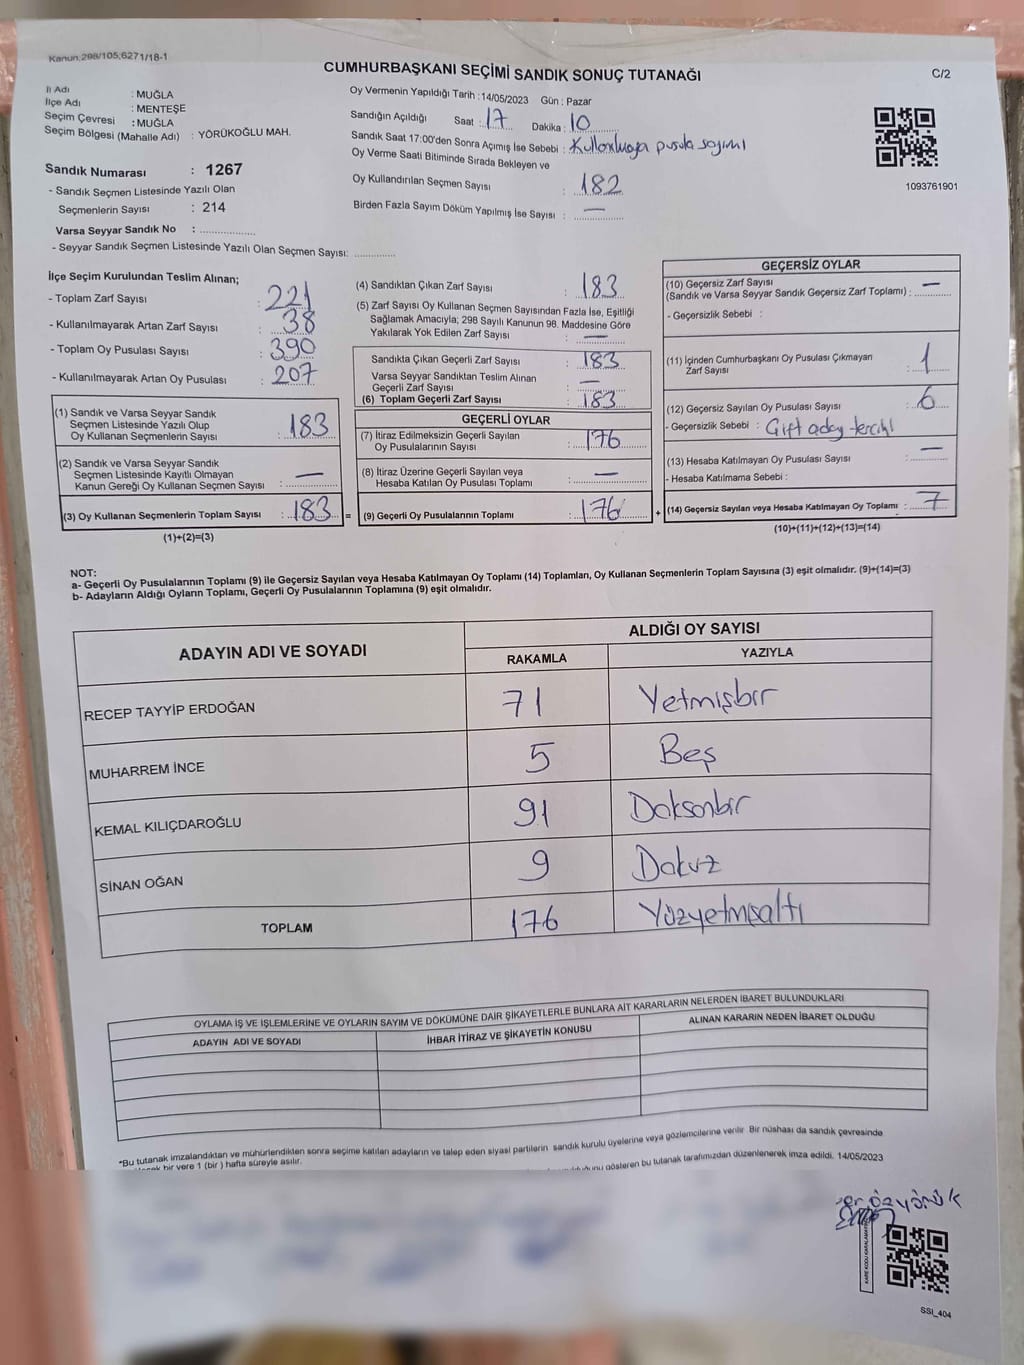 Kanun:298/105;6271/18-1
CUMHURBAŞKANI SEÇİMİ SANDIK SONUÇ TUTANAĞI
C/2
İl Adı : MUĞLA
İlçe Adı : MENTEŞE
Seçim Çevresi : MUĞLA
Seçim Bölgesi (Mahalle Adı) : YÖRÜKOĞLU MAH.
Sandık Numarası : 1267
- Sandık Seçmen Listesinde Yazılı Olan
Seçmenlerin Sayısı : 214
Varsa Seyyar Sandık No :
- Seyyar Sandık Seçmen Listesinde Yazılı Olan Seçmen Sayısı:
Oy Vermenin Yapıldığı Tarih : 14/05/2023 Gün : Pazar
Sandığın Açıldığı Saat : 17 Dakika : 10
Sandık Saat 17:00'den Sonra Açımış İse Sebebi : Kullanılmayan pusula sayımı
Oy Verme Saati Bitiminde Sırada Bekleyen ve
Oy Kullandırılan Seçmen Sayısı : 182
Birden Fazla Sayım Döküm Yapılmış İse Sayısı : —
1093761901
İlçe Seçim Kurulundan Teslim Alınan;
- Toplam Zarf Sayısı : 221
- Kullanılmayarak Artan Zarf Sayısı : 38
- Toplam Oy Pusulası Sayısı : 390
- Kullanılmayarak Artan Oy Pusulası : 207
(1) Sandık ve Varsa Seyyar Sandık
Seçmen Listesinde Yazılı Olup
Oy Kullanan Seçmenlerin Sayısı : 183
(2) Sandık ve Varsa Seyyar Sandık
Seçmen Listesinde Kayıtlı Olmayan
Kanun Gereği Oy Kullanan Seçmen Sayısı : —
(3) Oy Kullanan Seçmenlerin Toplam Sayısı : 183 =
(1)+(2)=(3)
(4) Sandıktan Çıkan Zarf Sayısı : 183
(5) Zarf Sayısı Oy Kullanan Seçmen Sayısından Fazla İse, Eşitliği
Sağlamak Amacıyla; 298 Sayılı Kanunun 98. Maddesine Göre
Yakılarak Yok Edilen Zarf Sayısı : —
Sandıkta Çıkan Geçerli Zarf Sayısı : 183
Varsa Seyyar Sandıktan Teslim Alınan
Geçerli Zarf Sayısı : —
(6) Toplam Geçerli Zarf Sayısı : 183
GEÇERLİ OYLAR
(7) İtiraz Edilmeksizin Geçerli Sayılan
Oy Pusulalarının Sayısı : 176
(8) İtiraz Üzerine Geçerli Sayılan veya
Hesaba Katılan Oy Pusulası Toplamı : —
(9) Geçerli Oy Pusulalarının Toplamı : 176 +
GEÇERSİZ OYLAR
(10) Geçersiz Zarf Sayısı
(Sandık ve Varsa Seyyar Sandık Geçersiz Zarf Toplamı) : —
- Geçersizlik Sebebi :
(11) İçinden Cumhurbaşkanı Oy Pusulası Çıkmayan
Zarf Sayısı : 1
(12) Geçersiz Sayılan Oy Pusulası Sayısı : 6
- Geçersizlik Sebebi : Çift aday tercihi
(13) Hesaba Katılmayan Oy Pusulası Sayısı : —
- Hesaba Katılmama Sebebi :
(14) Geçersiz Sayılan veya Hesaba Katılmayan Oy Toplamı : 7
(10)+(11)+(12)+(13)=(14)
NOT:
a- Geçerli Oy Pusulalarının Toplamı (9) ile Geçersiz Sayılan veya Hesaba Katılmayan Oy Toplamı (14) Toplamları, Oy Kullanan Seçmenlerin Toplam Sayısına (3) eşit olmalıdır. (9)+(14)=(3)
b- Adayların Aldığı Oyların Toplamı, Geçerli Oy Pusulalarının Toplamına (9) eşit olmalıdır.
ADAYIN ADI VE SOYADI
ALDIĞI OY SAYISI
RAKAMLA YAZIYLA
RECEP TAYYİP ERDOĞAN 71 Yetmişbir
MUHARREM İNCE 5 Beş
KEMAL KILIÇDAROĞLU 91 Doksanbir
SİNAN OĞAN 9 Dokuz
TOPLAM 176 Yüzyetmişaltı
OYLAMA İŞ VE İŞLEMLERİNE VE OYLARIN SAYIM VE DÖKÜMÜNE DAİR ŞİKAYETLERLE BUNLARA AİT KARARLARIN NELERDEN İBARET BULUNDUKLARI
ADAYIN ADI VE SOYADI İHBAR İTİRAZ VE ŞİKAYETİN KONUSU ALINAN KARARIN NEDEN İBARET OLDUĞU
*Bu tutanak imzalandıktan ve mühürlendikten sonra seçime katılan adayların ve talep eden siyasi partilerin sandık kurulu üyelerine veya gözlemcilerine verilir. Bir nüshası da sandık çevresinde
bir yere 1 (bir ) hafta süreyle asılır.
gösteren bu tutanak tarafımızdan düzenlenerek imza edildi. 14/05/2023
özyörük
KARE KODU KARALAMAYINIZ
SSI_404